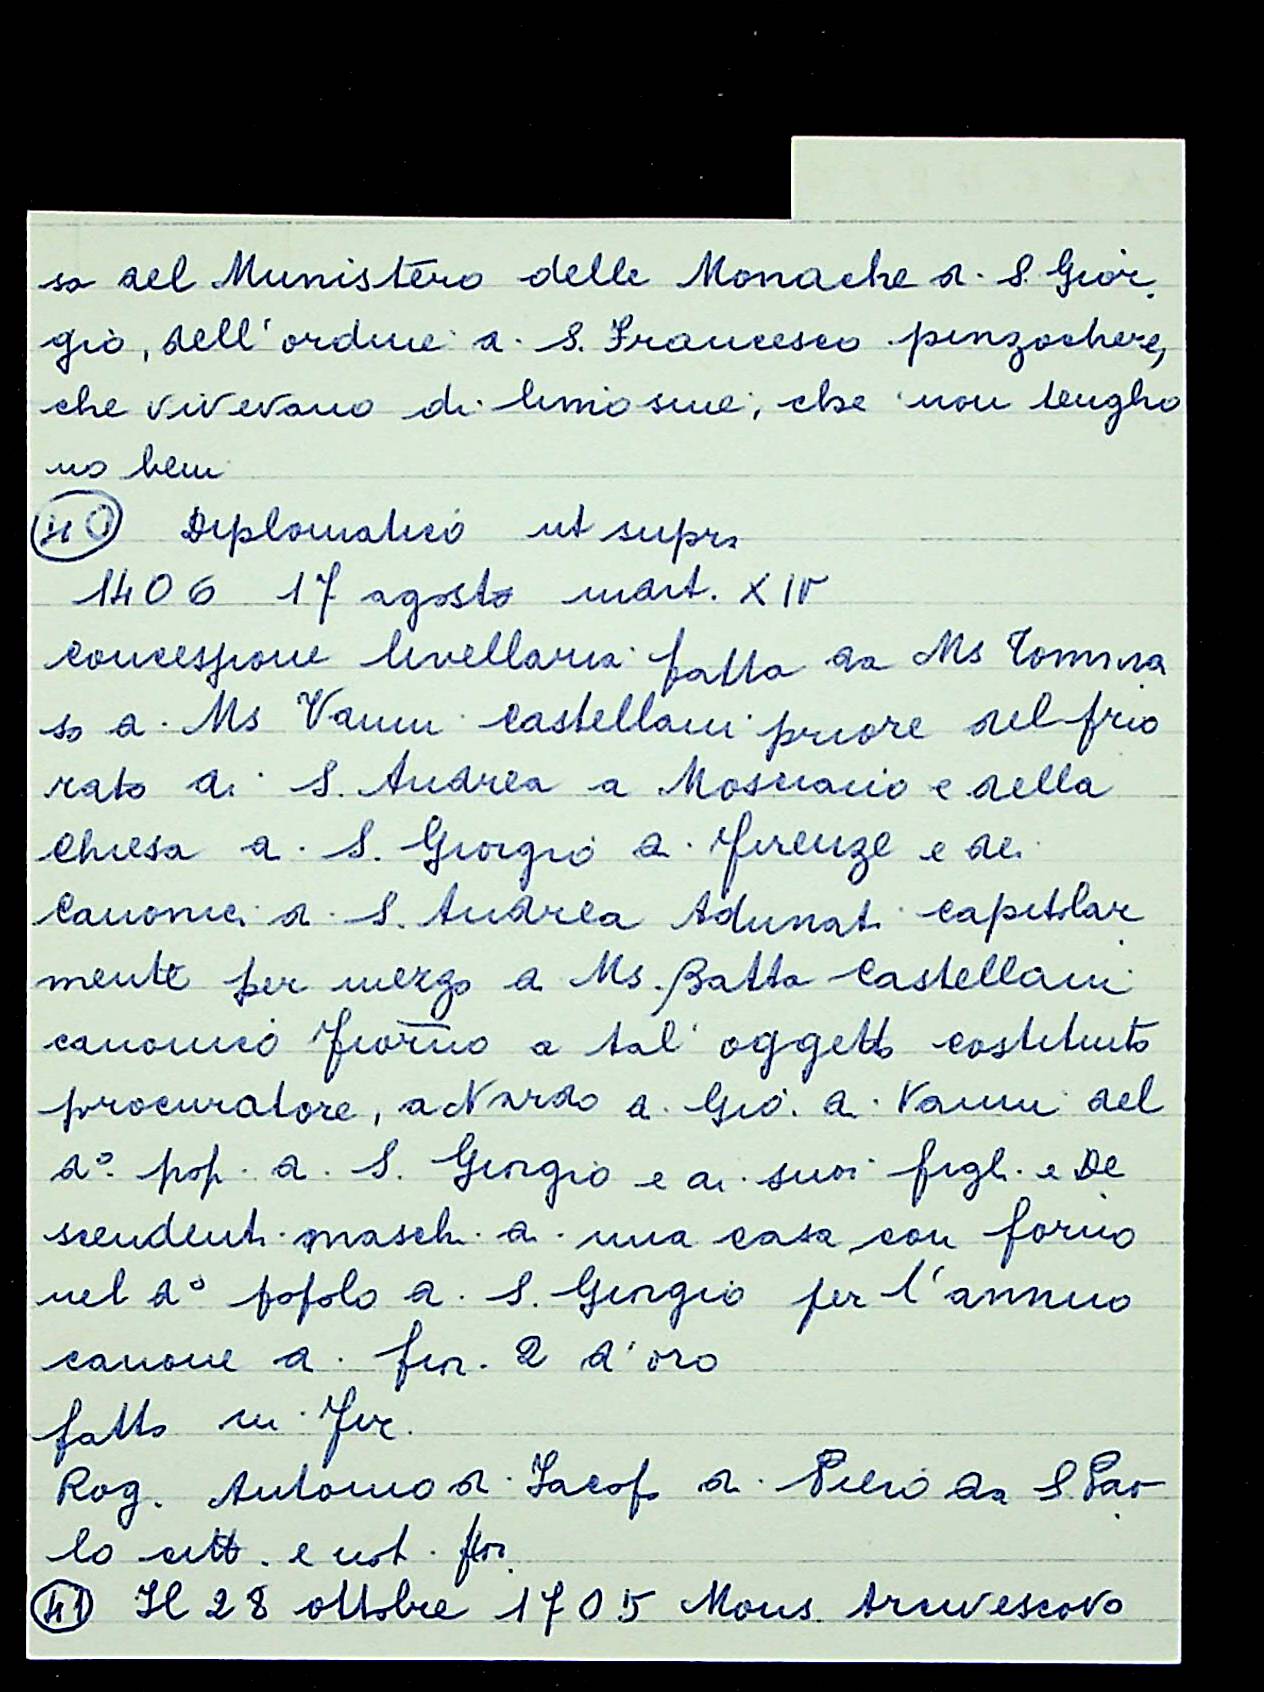 so del Munistero delle Monache di S. Gior
gio, dell'ordine di S. Francesco pinzochere,
che vivevano di limosine, che non tengho
no beni
40 Diplomatico ut supra
1406 17 agosto indit. XIV
concessione livellaria fatta da Ms Tomma
so di Ms Vanni Castellani priore del prio
rato di S. Andrea a Mosciano e della
Chiesa di S. Giorgio di Firenze e dei
Canonici di S. Andrea Adunati capitolar
mente per mezzo di Ms. Batta Castellani
canonico Fiorno a tal' oggetto costituito
procuratore, a Nardo di Gio. di Vanni del
do. pop. di S. Giorgio e ai suoi figli e De
scendenti maschi di una casa con forno
nel do popolo di S. Giorgio per l'annuo
canone di fior. 2 d'oro
fatto in Fir.
Rog. Antonio di Jacopo di Piero da S. Pao
lo citt. e not. fior.
41 Il 28 ottobre 1705 Mons. Arcivescovo